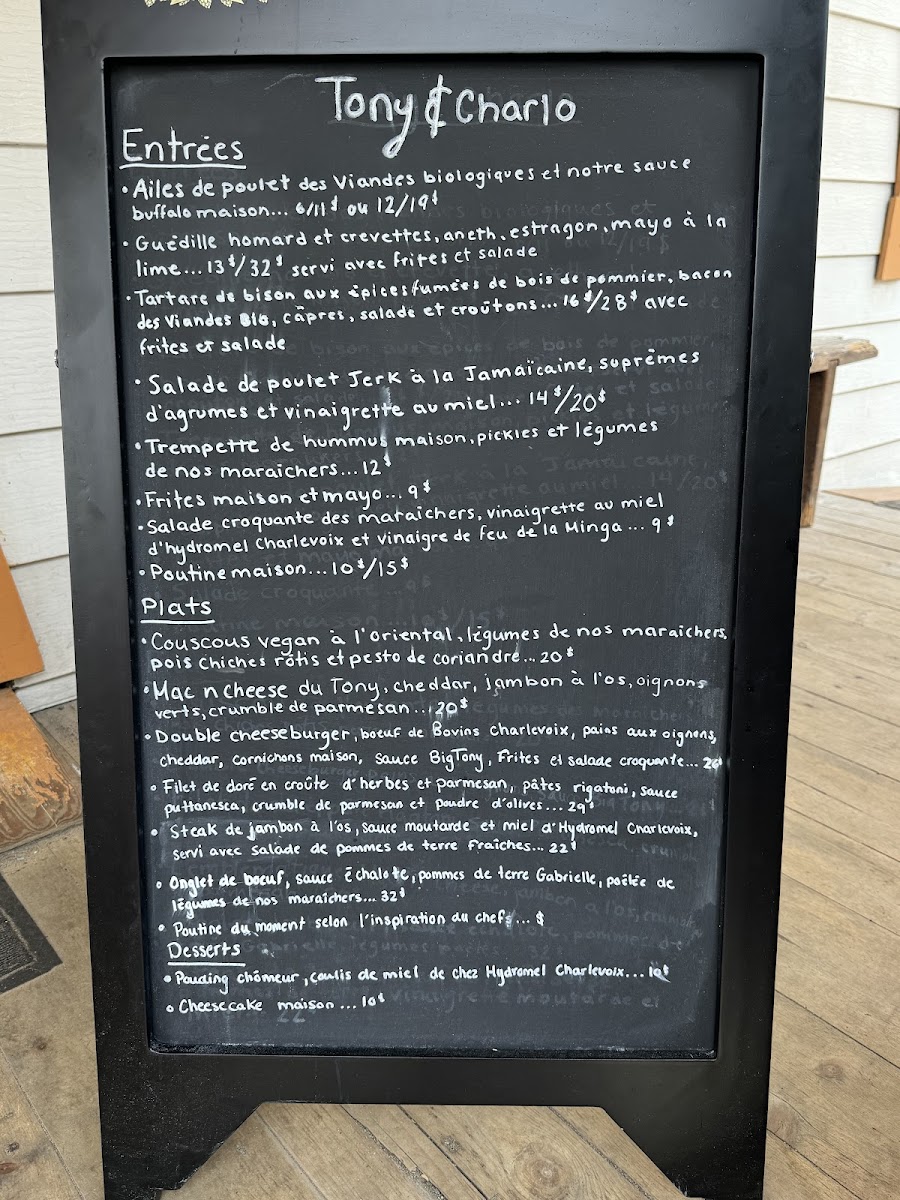 Tony & Charlo
Entrées
• Ailes de poulet des Viandes biologiques et notre sauce
buffalo maison... 6/11$ ou 12/19$
• Guédille homard et crevettes, aneth, estragon, mayo à la
lime... 13$/32$ servi avec frites et salade
• Tartare de bison aux épices fumées de bois de pommier, bacon
des Viandes Bio, câpres, salade et croûtons... 16$/28$ avec
frites et salade
• Salade de poulet Jerk à la Jamaïcaine, suprêmes
d'agrumes et vinaigrette au miel... 14$/20$
• Trempette de hummus maison, pickles et légumes
de nos maraichers... 12$
• Frites maison et mayo... 9$
• Salade croquante des maraichers, vinaigrette au miel
d'hydromel Charlevoix et vinaigre de feu de la Minga... 9$
• Poutine maison... 10$/15$
Plats
• Couscous vegan à l'oriental, légumes de nos maraichers,
pois chiches rôtis et pesto de coriandre... 20$
• Mac n cheese du Tony, cheddar, jambon à l'os, oignons
verts, crumble de parmesan... 20$
• Double cheeseburger, boeuf de Bovins Charlevoix, pains aux oignons,
cheddar, cornichons maison, sauce BigTony, Frites et salade croquante...
• Filet de doré en croûte d'herbes et parmesan, pâtes rigatoni, sauce
puttanesca, crumble de parmesan et poudre d'olives... 29$
• Steak de jambon à l'os, sauce moutarde et miel d'Hydromel Charlevoix,
servi avec salade de pommes de terre Fraîches... 22$
• Onglet de boeuf, sauce échalote, pommes de terre Gabrielle, poêlée de
légumes de nos maraîchers... 32$
• Poutine du moment selon l'inspiration du chefs... $
Desserts
• Pouding chômeur, coulis de miel de chez Hydromel Charlevoix... 10$
• Cheesecake maison... 10$